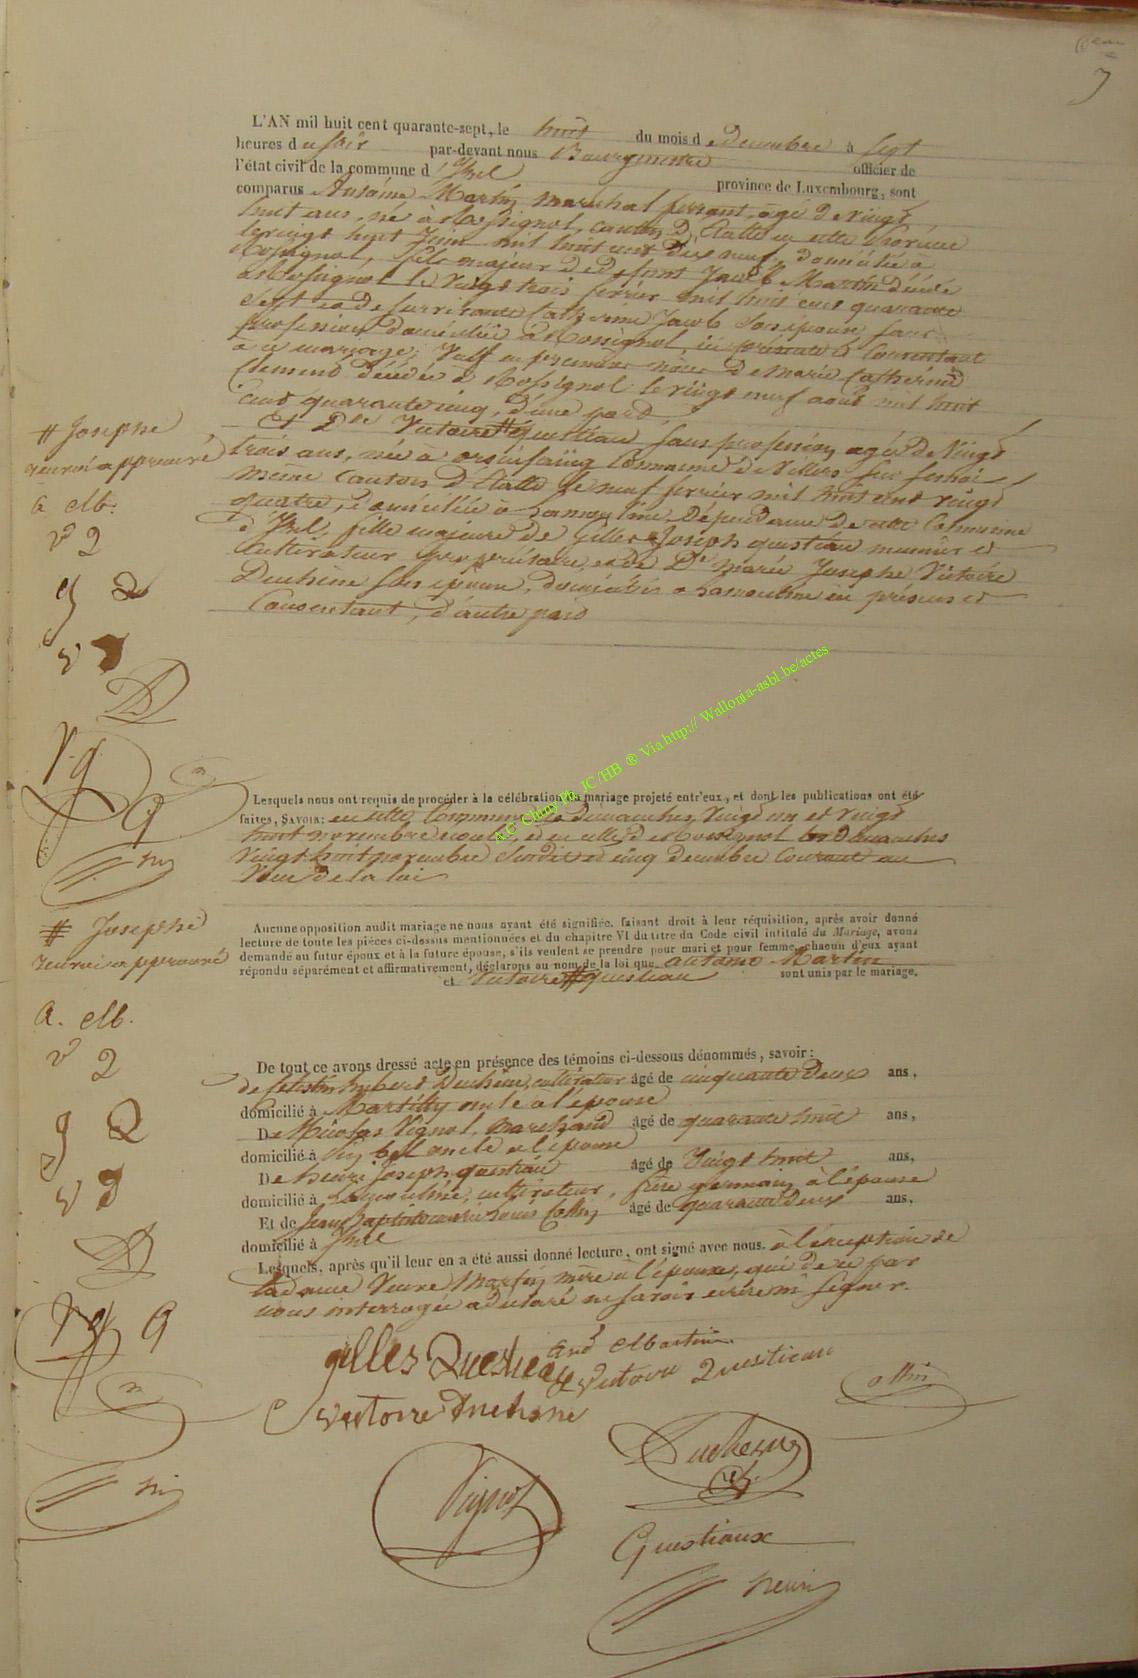 7
L'AN mil huit cent quarante-sept, le huit du mois de decembre à sept
heures du soir par-devant nous Bourgmestre officier de
l'état civil de la commune d'Izel province de Luxembourg, sont
comparus Antoine Martin marechal ferrant, âgé de vingt
huit ans, né à Rossignol, canton d'Etalle en cette Province
le vingt huit Juin mil huit cent dix neuf, domicilié à
Rossignol, fils majeur de defunt Jacob Martin décédé
à Rossignol le vingt trois fevrier mil huit cent quarante
sept et de survivante Catherine Jacob son épouse, sans
profession, domiciliée à Rossignol, ici présente et Consentant
à ce mariage, Veuf en premières nôces de Marie Catherine
Clement décédée à Rossignol le vingt neuf août mil huit
cent quarante cinq, d'une part
Et Dlle Victoire # questiau sans profession, agée de vingt
trois ans, née à orsinfaing Commune de Villers sur semois
même Canton d'Etalle le neuf fevrier mil huit cent vingt
quatre, domiciliée à Lamouline Dépendance de cette Commune
d'Izel, fille majeure de Gilles Joseph questiau meunier et
Cultivateur propriétaire, et de De marie Josephe Victoire
Duchène son épouse, domiciliés a Lamouline en présens et
Consentant, d'autre part
# Josephe
renvoi approuvé
a Mb.
v 2
g Q
v D
V g
Q
A.C Chiny Ph. JC/HB ® Via http:// Wallonia-asbl.be/actes
Lesquels nous ont requis de procéder à la célébration du mariage projeté entr'eux, et dont les publications ont été
faites, SAVOIR: en cette Commune les dimanches, vingt un et vingt
huit novembre écoulé, et en celle de Rossignol les Dimanches
vingt huit novembre susdit et cinq decembre Courant au
Vœu de la loi
Aucune opposition audit mariage ne nous ayant été signifiée, faisant droit à leur réquisition, après avoir donné
lecture de toute les pièces ci-dessus mentionnées et du chapitre VI du titre du Code civil intitulé du Mariage, avons
demandé au futur époux et à la future épouse, s'ils veulent se prendre pour mari et pour femme, chacun d'eux ayant
répondu séparément et affirmativement, déclarons au nom de la loi que antoine Martin
et Victoire # questiau sont unis par le mariage.
# Josephe
renvoi approuvé
a. Mb.
v 2
g Q
v D
V g Q
De tout ce avons dressé acte en présence des témoins ci-dessous dénommés, savoir:
de Celestin hubert Duchène, cultivateur âgé de cinquante deux ans,
domicilié à Martilly oncle a l'épouse
De Nicolas Vignol, marchand âgé de quarante huit ans,
domicilié à bel oncle a l'épouse
De henri Joseph questiau âgé de vingt huit ans,
domicilié à Lamouline, cultivateur, frère germain à l'épouse
Et de Jean baptiste Collin âgé de quarante deux ans,
domicilié à Izel
Lesquels, après qu'il leur en a été aussi donné lecture, ont signé avec nous. à l'exception de
la dame Veuve Martin mère à l'époux, qui de ce par
nous interrogée a déclaré ne savoir écrire ni signer.
Ant Martin
gilles Questieau Victoire Questieau
victoire Duchene
Collin
Duchesne
Vignol
Questiaux
henri